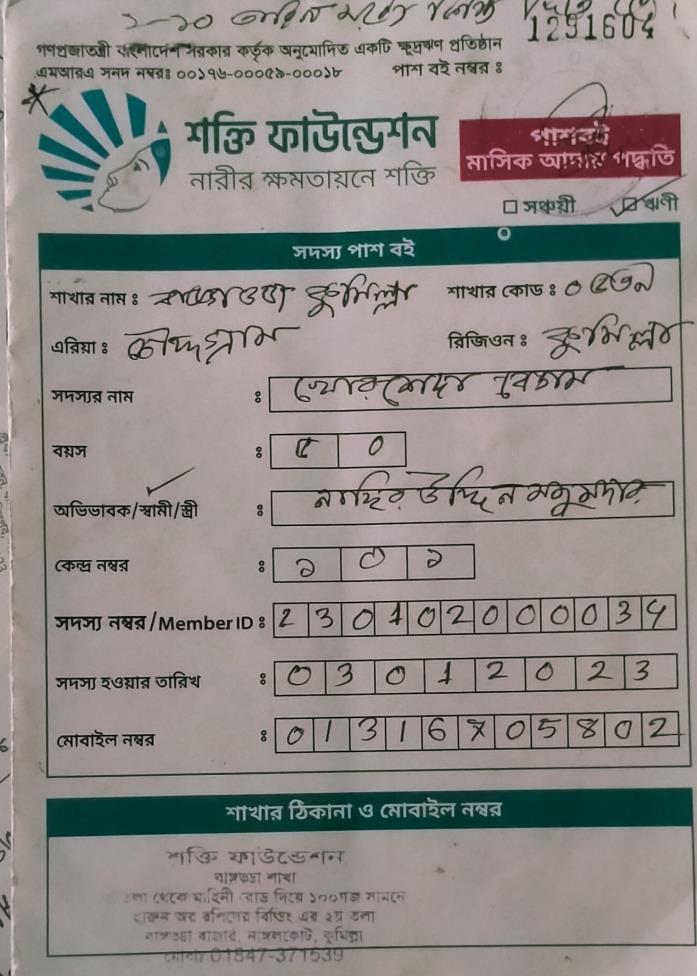 ১-১০
1291604
গণপ্রজাতন্ত্রী বাংলাদেশ সরকার কর্তৃক অনুমোদিত একটি ক্ষুদ্রঋণ প্রতিষ্ঠান
এমআরএ সনদ নম্বরঃ ০০১৭৬-০০৫৯-০০০১৮ পাশ বই নম্বর ঃ
শক্তি ফাউন্ডেশন
নারীর ক্ষমতায়নে শক্তি
পাশবই
মাসিক আদায় পদ্ধতি
সঞ্চয়ী ঋণী
সদস্য পাশ বই
শাখার নাম ঃ কুমিল্লা শাখার কোড ঃ
এরিয়া ঃ চৌদ্দগ্রাম রিজিওন ঃ কুমিল্লা
সদস্যর নাম ঃ খোরশেদা বেগম
বয়স ঃ ৫০
অভিভাবক/স্বামী/স্ত্রী ঃ নাছির উদ্দিন মজুমদার
কেন্দ্র নম্বর ঃ ১০১
সদস্য নম্বর/Member ID ঃ 230102000034
সদস্য হওয়ার তারিখ ঃ 03012023
মোবাইল নম্বর ঃ 01316705802
শাখার ঠিকানা ও মোবাইল নম্বর
শক্তি ফাউন্ডেশন
বাঙ্গড্ডা শাখা
থেকে রোড দিয়ে ১০০গজ সামনে
বিল্ডিং এর ২য় তলা
বাঙ্গড্ডা বাজার, নাঙ্গলকোট, কুমিল্লা
01847-371539